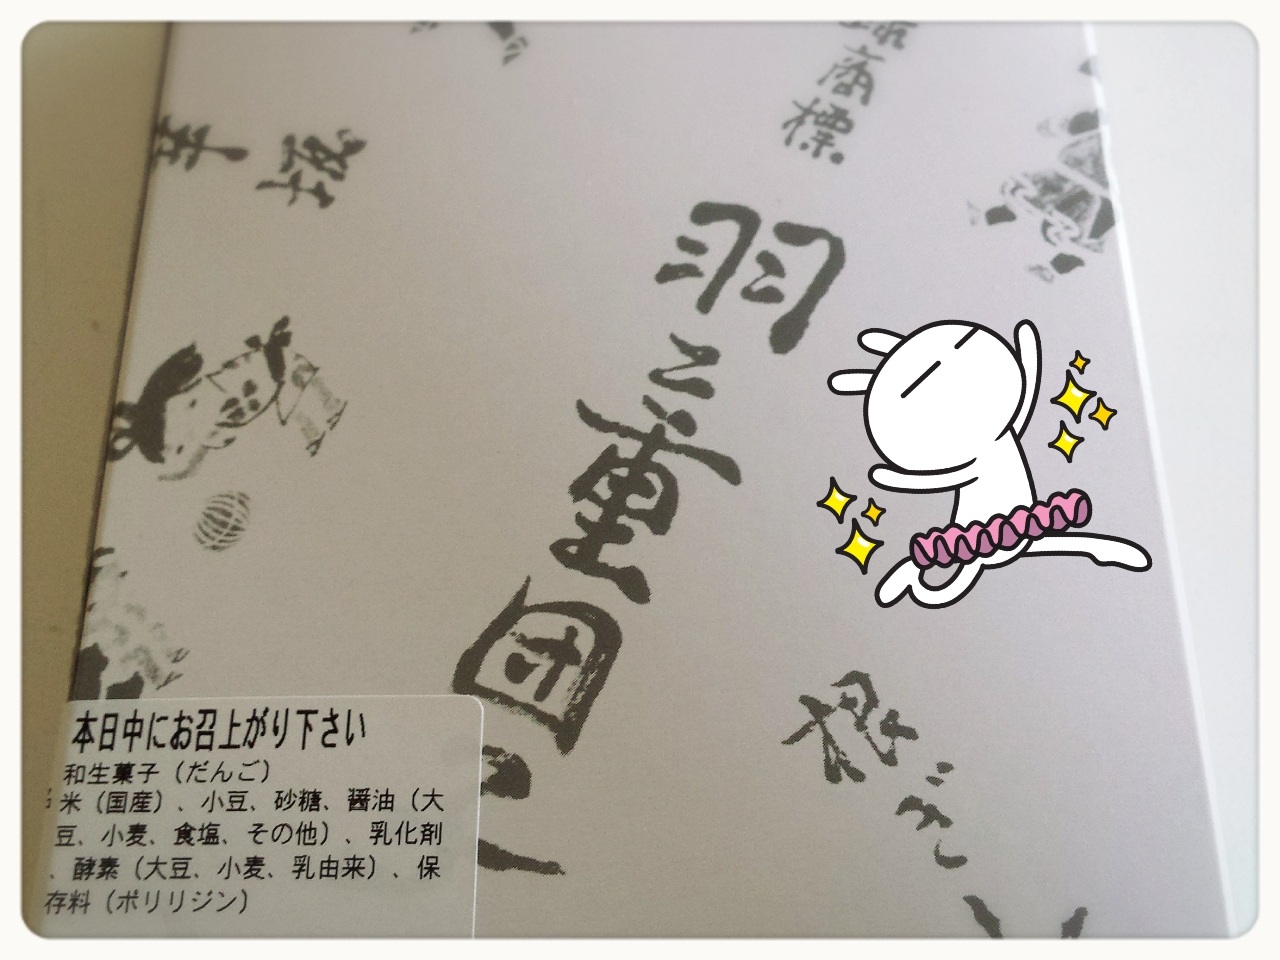 商標
羽二重団子
根ぎし
本日中にお召上がり下さい
和生菓子（だんご）
米（国産）、小豆、砂糖、醤油（大
豆、小麦、食塩、その他）、乳化剤
、酵素（大豆、小麦、乳由来）、保
存料（ポリリジン）